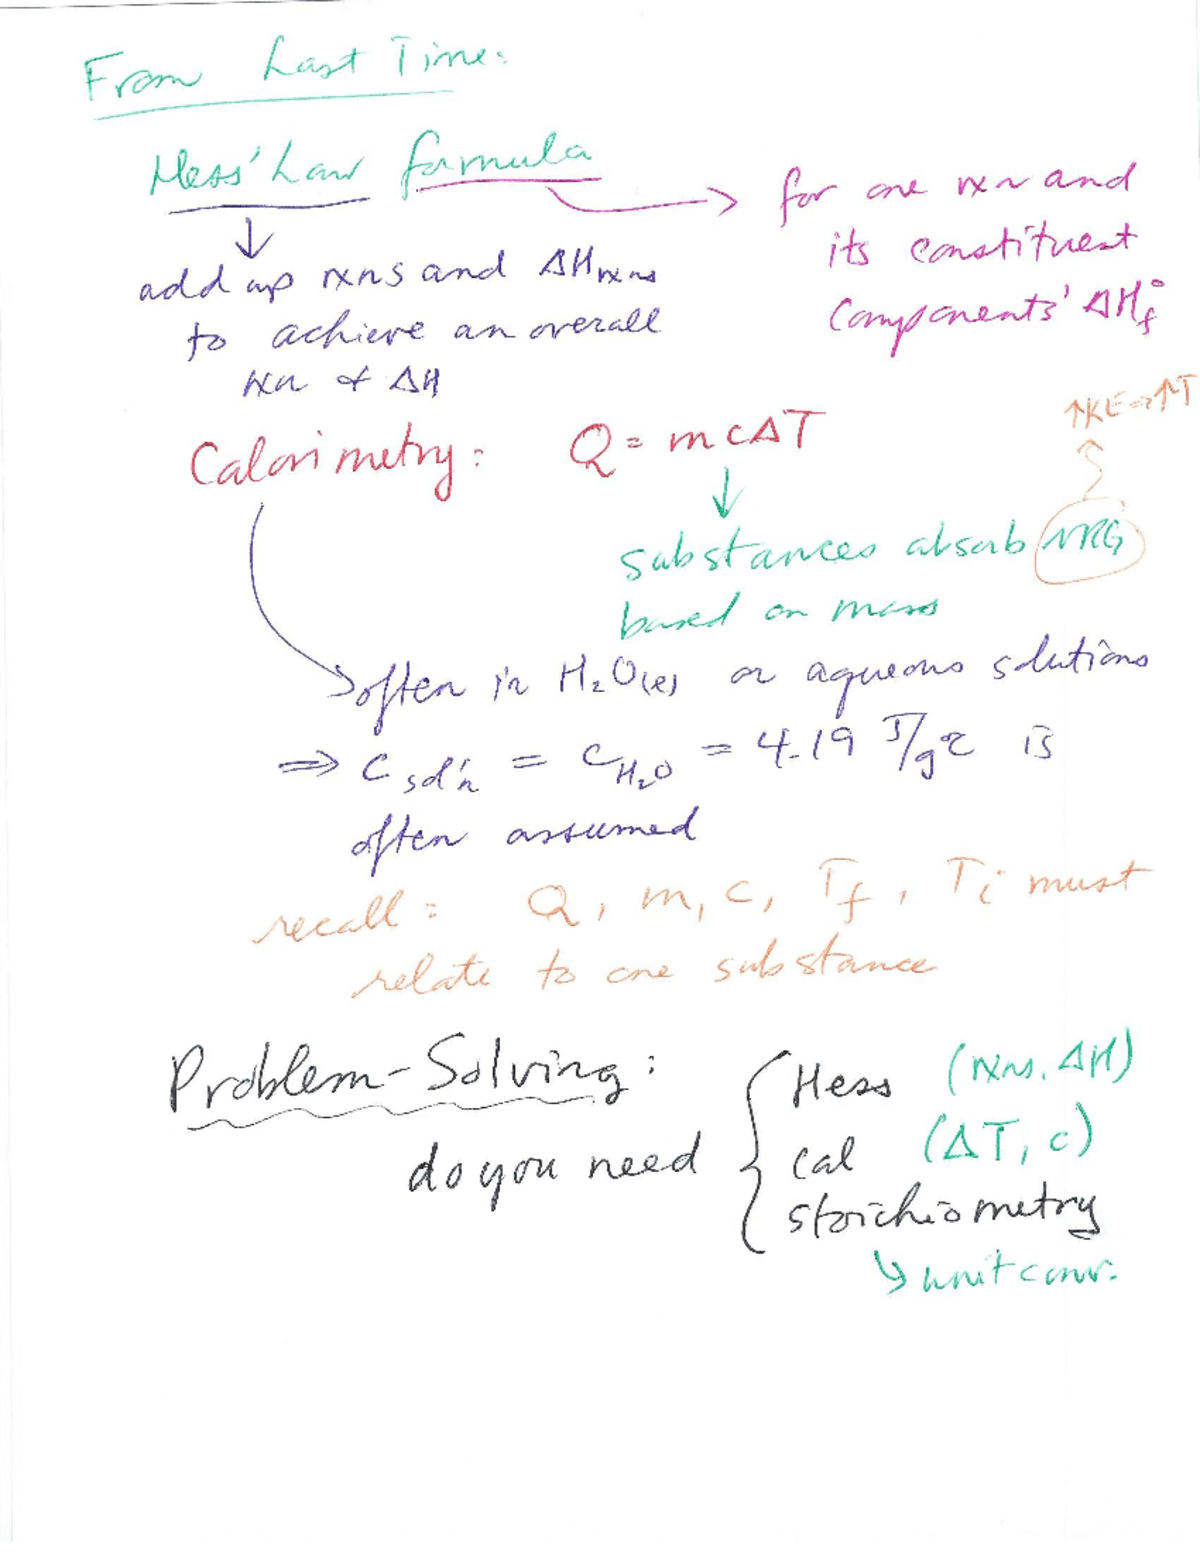 From Last Time:
Hess' Law formula
for one rxn and
its constituent
components' ΔH°f
add up rxns and ΔHrxns
to achieve an overall
rxn & ΔH
Calorimetry: Q = mcΔT
↑KE ⇒ ↑T
substances absorb NRG
based on mass
often in H₂O(l) or aqueous solutions
⇒ c sol'n = c H₂O = 4.19 J/g°C is
often assumed
recall: Q, m, c, Tf, Ti must
relate to one substance
Problem-Solving:
do you need
Hess (rxns, ΔH)
cal (ΔT, c)
stoichiometry
↳ unit conv.